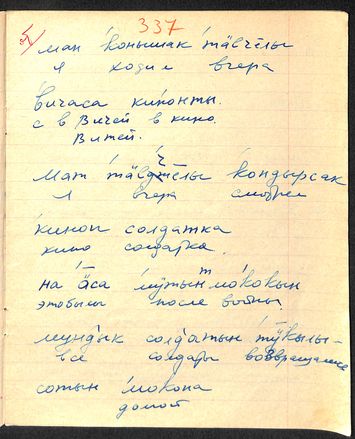 337
5/
ман коньшак тавчелы
я ходил вчера
вичаса киконты.
с в Витей в кино.
Витей.
Мат тавджелы кондырсак
я вчера смотрел
кинон солдатка
кино солдатка.
на āса мӯтын мōкокын
это было после войны.
мундык солдатын тӯкылы-
все солдаты возвращались
сотын мокона
домой